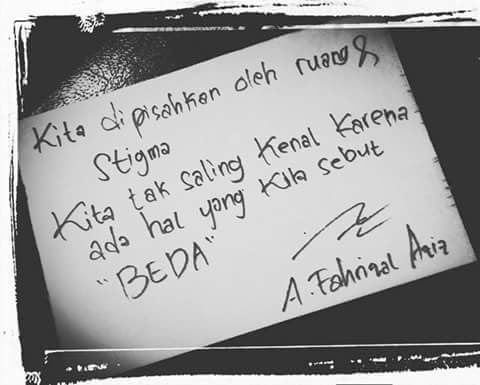 Kita dipisahkan oleh ruang &
Stigma
Kita tak saling kenal karena
ada hal yang kita sebut
"BEDA"
A. Fahrizal Aziz